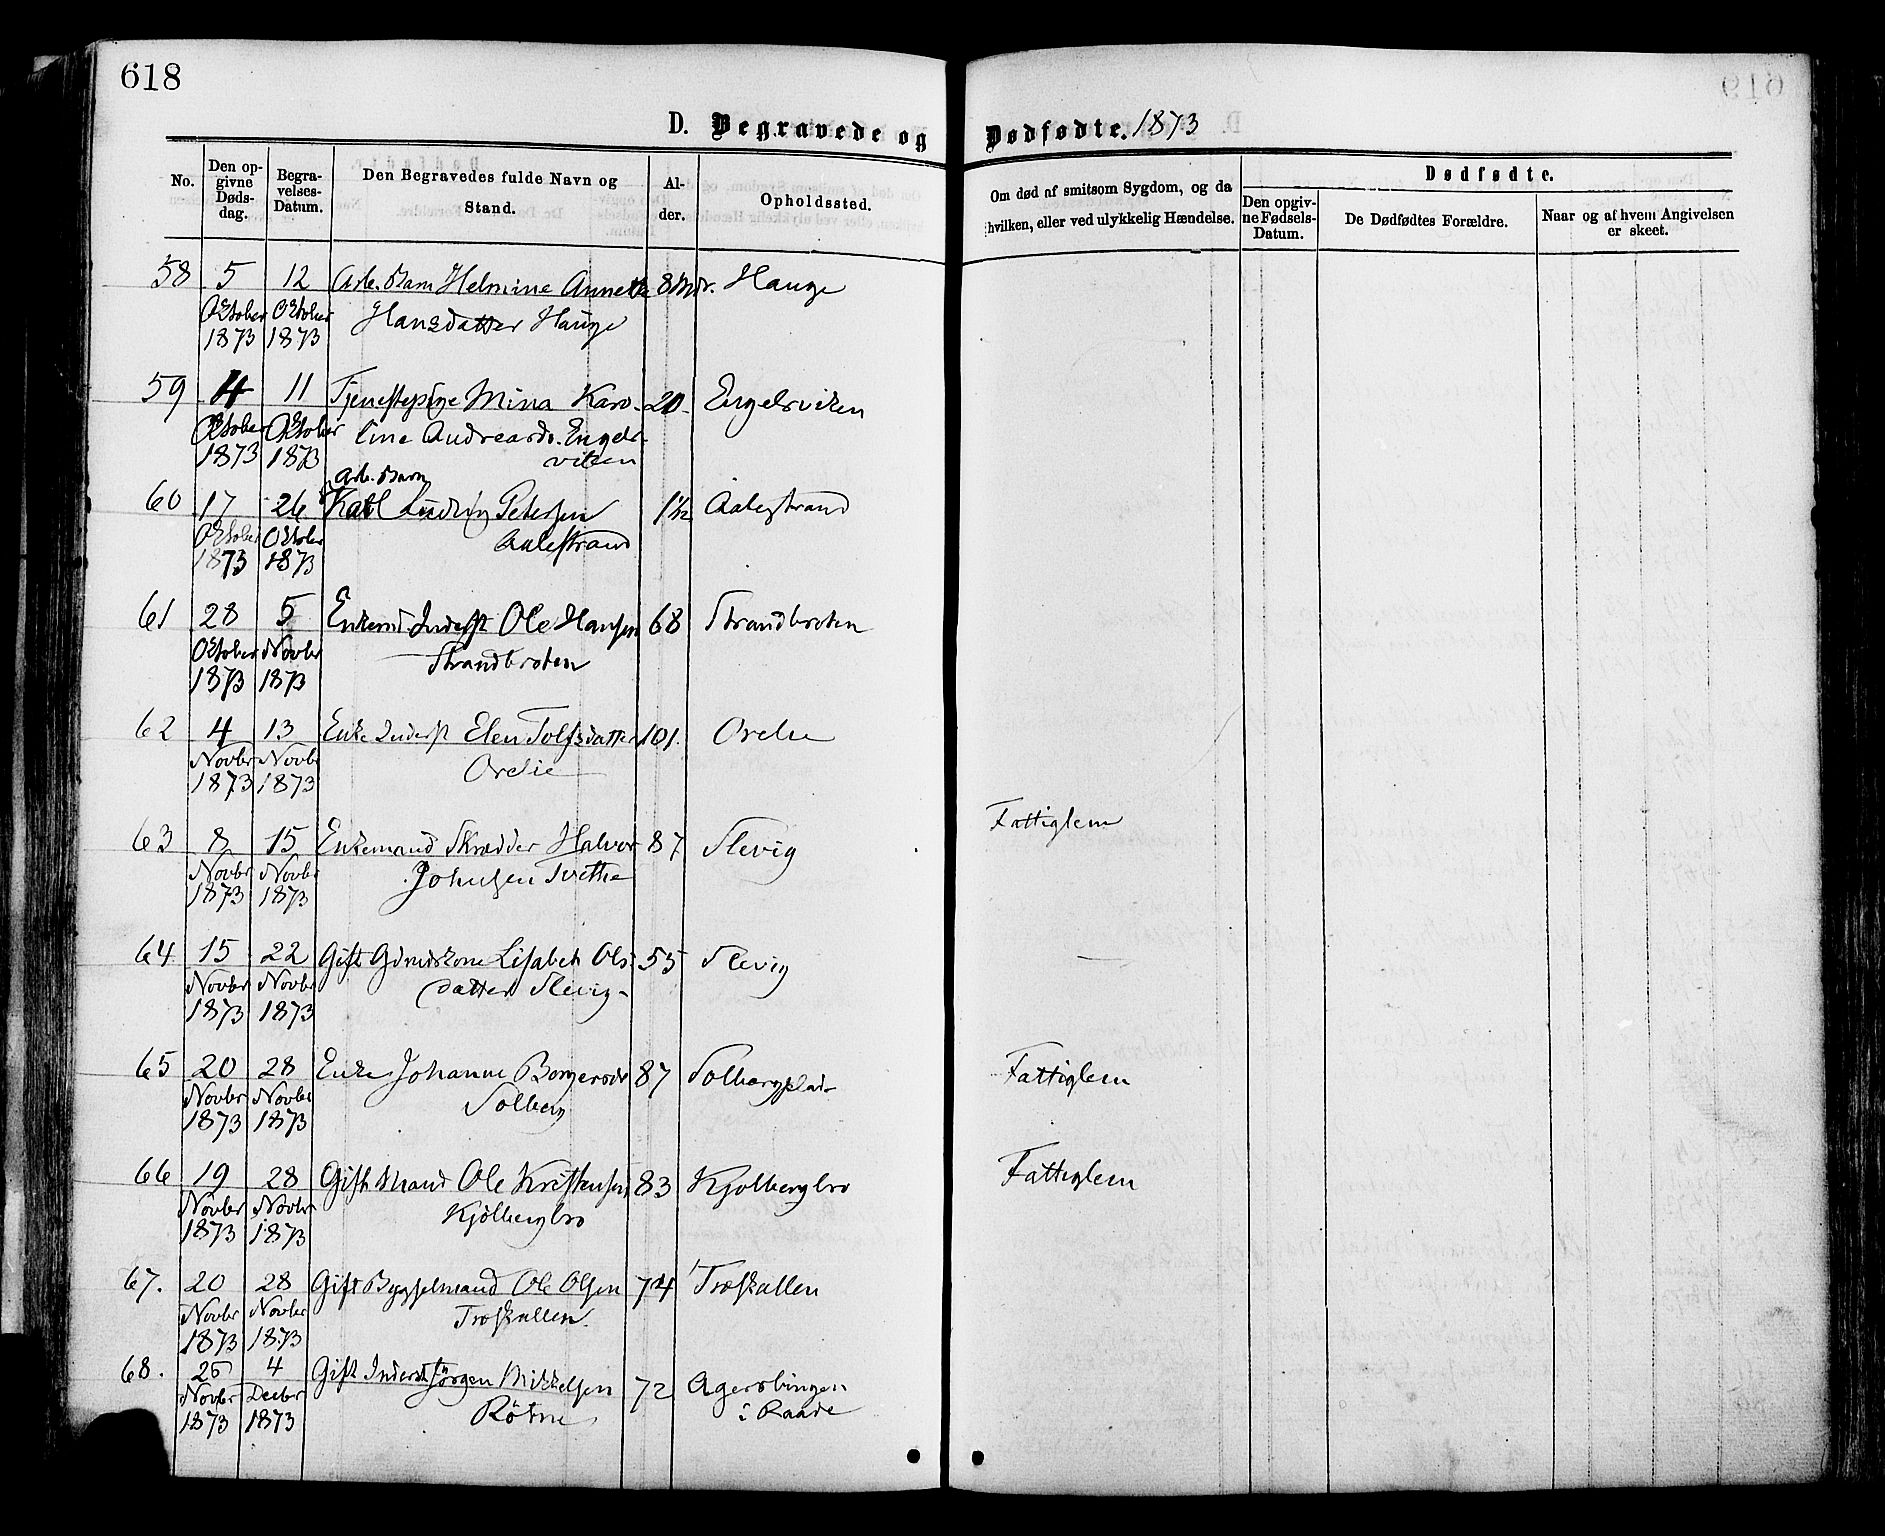 618
D. Begravede og Dødfødte. 1873
No.
Den opgivne Dødsdag.
Begravelses-Datum.
Den Begravedes fulde Navn og Stand.
Alder.
Opholdssted.
Om død af smitsom Sygdom, og da hvilken, eller ved ulykkelig Hændelse.
Dødfødte.
Den opgivne Fødsels-Datum.
De Dødfødtes Forældre.
Naar og af hvem Angivelsen er skeet.
58 5 12 Arb. Barn Helmine Annette 8 Mdr. Hauge
Oktober Oktober Hansdatter Hauge
1873 1873
59 4 11 Tjenestepige Mina Karo- 20 Engelsviken
Oktober Oktober line Andreasd. Engels-
1873 1873 viken
Arb. Barn
60 17 26 Karl Ludvig Petersen 1½ Aalestrand
Oktober Oktober Aalestrand
1873 1873
61 28 5 Enkemd. Inderst Ole Hansen 68 Strandbroten
Oktober Novbr Strandbroten
1873 1873
62 4 13 Enke Inderst Elen Tolfsdatter 101. Orelie
Novbr Novbr Orelie
1873 1873
63 8 15 Enkemand Skrædder Halvor 87 Slevig Fattiglem
Novbr Novbr Johnsen Tvethe
1873 1873
64 15 22 Gift Gdmdskone Lisabeth Ols- 55 Slevig
Novbr Novbr datter Slevig
1873 1873
65 20 28 Enke Johanne Borgersdr 87 Solbergplads Fattiglem
Novbr Novbr Solberg
1873 1873
66 19 28 Gift Mand Ole Kristensen 83 Kjølbergbro Fattiglem
Novbr Novbr Kjölbergbro
1873 1873
67. 20 28 Gift Bygselmand Ole Olsen 74 Træskallen
Novbr Novbr Træskallen
1873 1873
68. 25 4 Gift Inderst Jörgen Mikkelsen 72 Agerobingen
Novbr Decbr Rötne i Raade
1873 1873